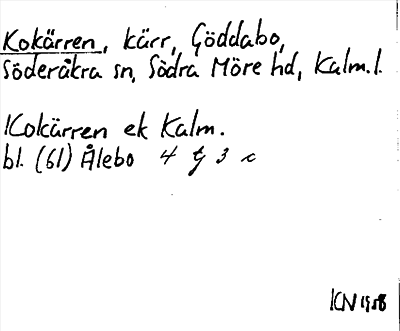 Kokärren, kärr, Göddabo,
Söderåkra sn, Södra Möre hd, Kalm. l.
Kokärren ek Kalm.
bl. (61) Ålebo 4 g 3 c
KN 1958